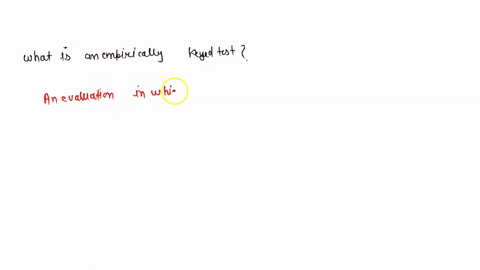 what is an empirically keyed test?
An evaluation in whi